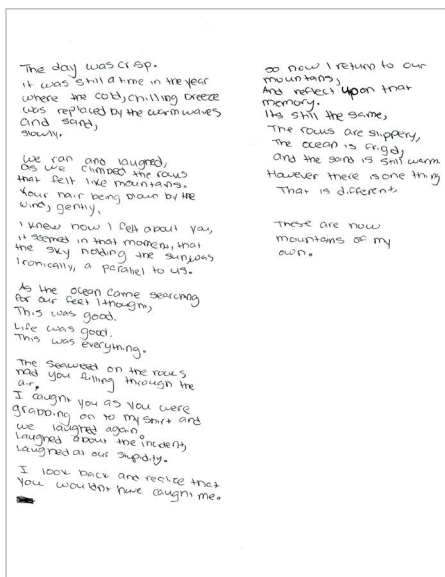 The day was crisp.
it was still a time in the year
where the cold, chilling breeze
was replaced by the warm waves
and sand,
slowly.
we ran and laughed,
as we climbed the rocks
that felt like mountains.
Your hair being blown by the
wind, gently,
I knew how I felt about you,
it seemed in that moment, that
the sky holding the sun, was
ironically, a parallel to us.
As the ocean came searching
for our feet I thought,
This was good.
Life was good.
This was everything.
The seaweed on the rocks
had you falling through the
air,
I caught you as you were
grabbing on to my shirt and
we laughed again.
Laughed about the incident,
Laughed at our stupidity.
I look back and realize that
you wouldnt have caught me.
so now I return to our
mountains,
And reflect upon that
memory.
Its still the same,
The rocks are slippery,
The ocean is frigid,
and the sand is still warm.
However there is one thing
That is different,
These are now
mountains of my
own.